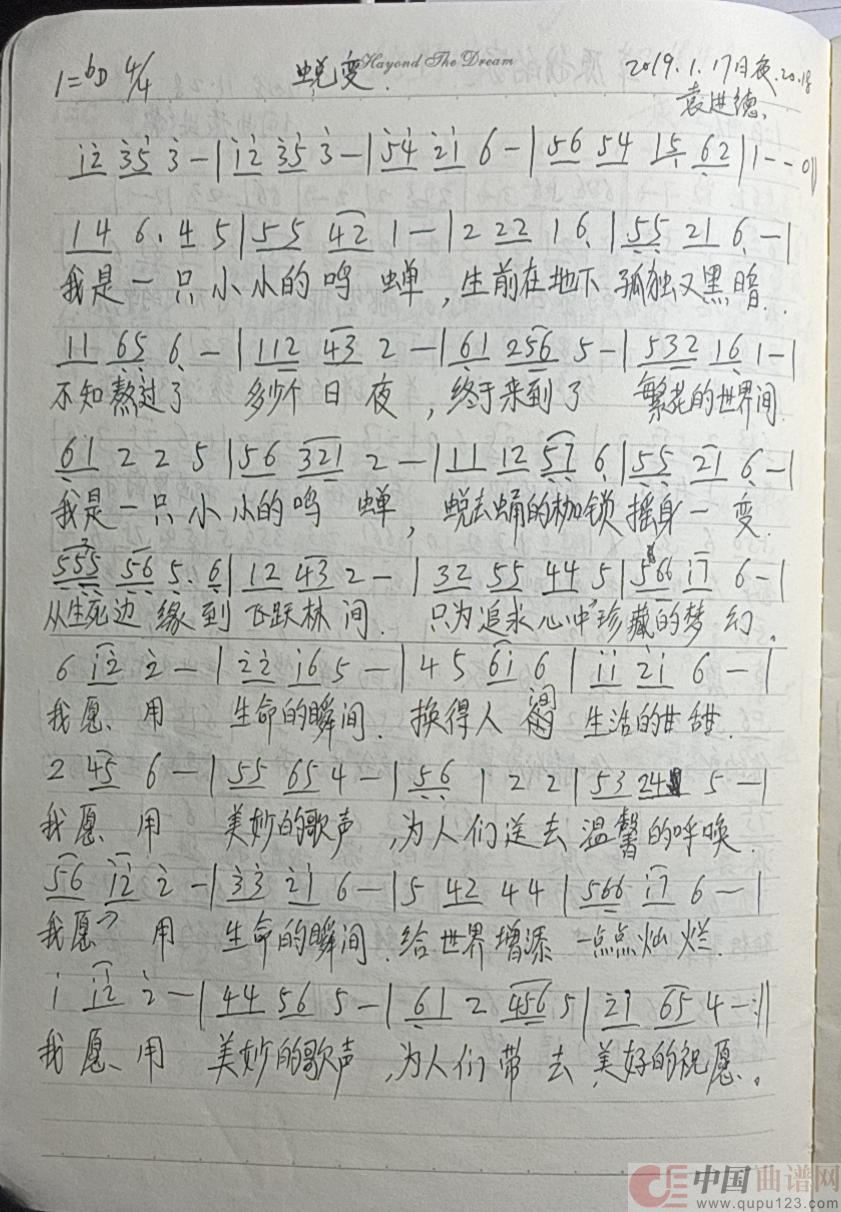 1=bD 4/4 蜕变. Hayond The Dream 2019.1.17日夜.20.18
袁进德.
i2 35 3 - | i2 35 3 - | 54 21 6 - | 56 54 15 62 | 1 - - 0 ||
14 6. 4 5 | 55 42 1 - | 2 22 1 6 | 55 21 6 - |
我是一只小小的鸣蝉,生前在地下孤独又黑暗.
11 65 6 - | 112 43 2 - | 61 256 5 - | 532 16 1 - |
不知熬过了 多少个日夜,终于来到了 繁花的世界间.
61 2 2 5 | 56 321 2 - | 11 12 57 6 | 55 21 6 - |
我是一只小小的鸣蝉,蜕去蛹的枷锁摇身一变.
555 56 5. 6 | 12 43 2 - | 32 55 44 5 | 566 i7 6 - |
从生死边缘到飞跃林间. 只为追求心中珍藏的梦幻.
6 i2 2 - | 22 i6 5 - | 4 5 6i 6 | ii 2i 6 - |
我愿、用 生命的瞬间.换得人间 生活的甘甜.
2 45 6 - | 55 65 4 - | 56 1 2 2 | 53 24 5 - |
我愿、用 美妙的歌声,为人们送去温馨的呼唤.
56 i2 2 - | 33 21 6 - | 5 42 44 | 566 i7 6 - |
我愿、用 生命的瞬间.给世界增添一点点灿烂.
i i2 2 - | 44 56 5 - | 61 2 456 5 | 21 65 4 - :||
我愿、用 美妙的歌声,为人们带去美好的祝愿.
中国曲谱网
www.qupu123.com